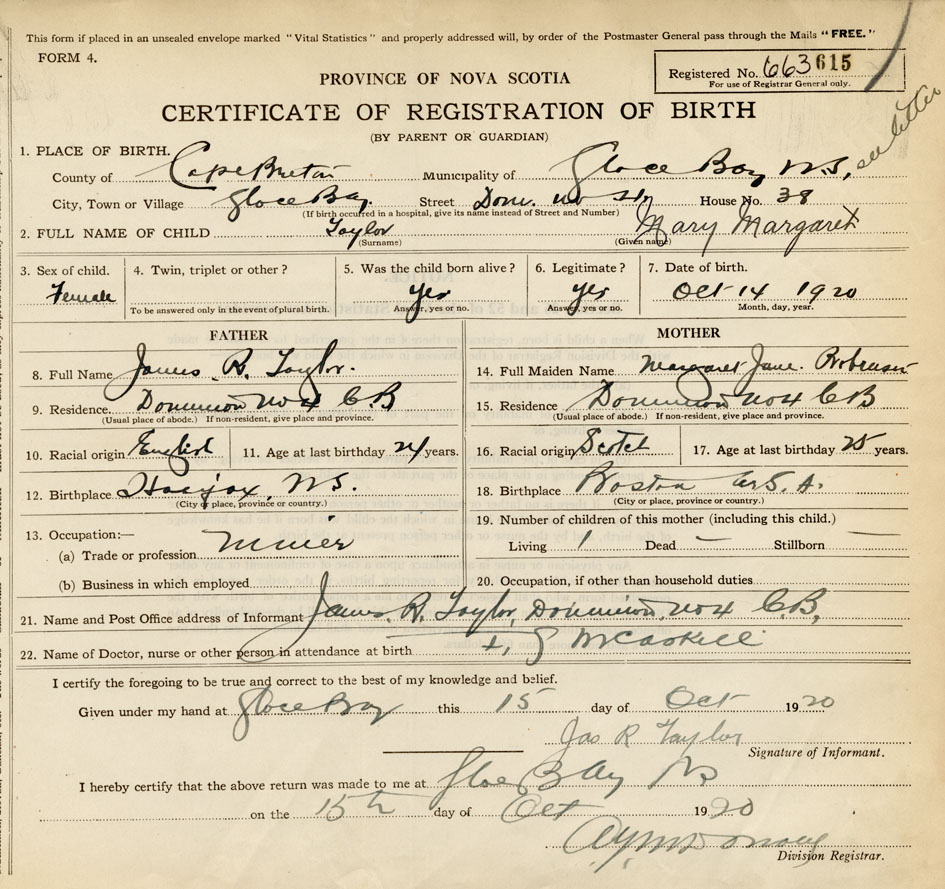 This form if placed in an unsealed envelope marked "Vital Statistics" and properly addressed will, by order of the Postmaster General pass through the Mails "FREE."
FORM 4.
Registered No. 663615
For use of Registrar General only.
PROVINCE OF NOVA SCOTIA
CERTIFICATE OF REGISTRATION OF BIRTH
(BY PARENT OR GUARDIAN)
see letter
1. PLACE OF BIRTH.
County of Cape Breton Municipality of Glace Bay N.S,
City, Town or Village Glace Bay. Street Dom. No House No. 38
(If birth occurred in a hospital, give its name instead of Street and Number)
2. FULL NAME OF CHILD Taylor Mary Margaret
(Surname) (Given name)
3. Sex of child. 4. Twin, triplet or other? 5. Was the child born alive? 6. Legitimate? 7. Date of birth.
Female Yes Yes Oct 14 1920
To be answered only in the event of plural birth. Answer, yes or no. Answer, yes or no. Month, day, year.
FATHER MOTHER
8. Full Name James R. Taylor. 14. Full Maiden Name Margaret Jane. Robinson
9. Residence. Dominion No 4 C.B 15. Residence Dominion No 4 C B
(Usual place of abode.) If non-resident, give place and province. (Usual place of abode.) If non-resident, give place and province.
10. Racial origin English 11. Age at last birthday 24 years. 16. Racial origin Scotch 17. Age at last birthday 25 years.
12. Birthplace Halifax, N.S. 18. Birthplace Boston U.S.A.
(City or place, province or country.) (City or place, province or country.)
19. Number of children of this mother (including this child.)
13. Occupation:—
(a) Trade or profession miner Living 1 Dead — Stillborn —
(b) Business in which employed 20. Occupation, if other than household duties
21. Name and Post Office address of Informant James. R. Taylor, Dominion, No 4 C.B,
22. Name of Doctor, nurse or other person in attendance at birth McCaskill
I certify the foregoing to be true and correct to the best of my knowledge and belief.
Given under my hand at Glace Bay this 15 day of Oct 1920
Jas R Taylor
Signature of Informant.
I hereby certify that the above return was made to me at Glace Bay NS
on the 15th day of Oct 1920
Division Registrar.